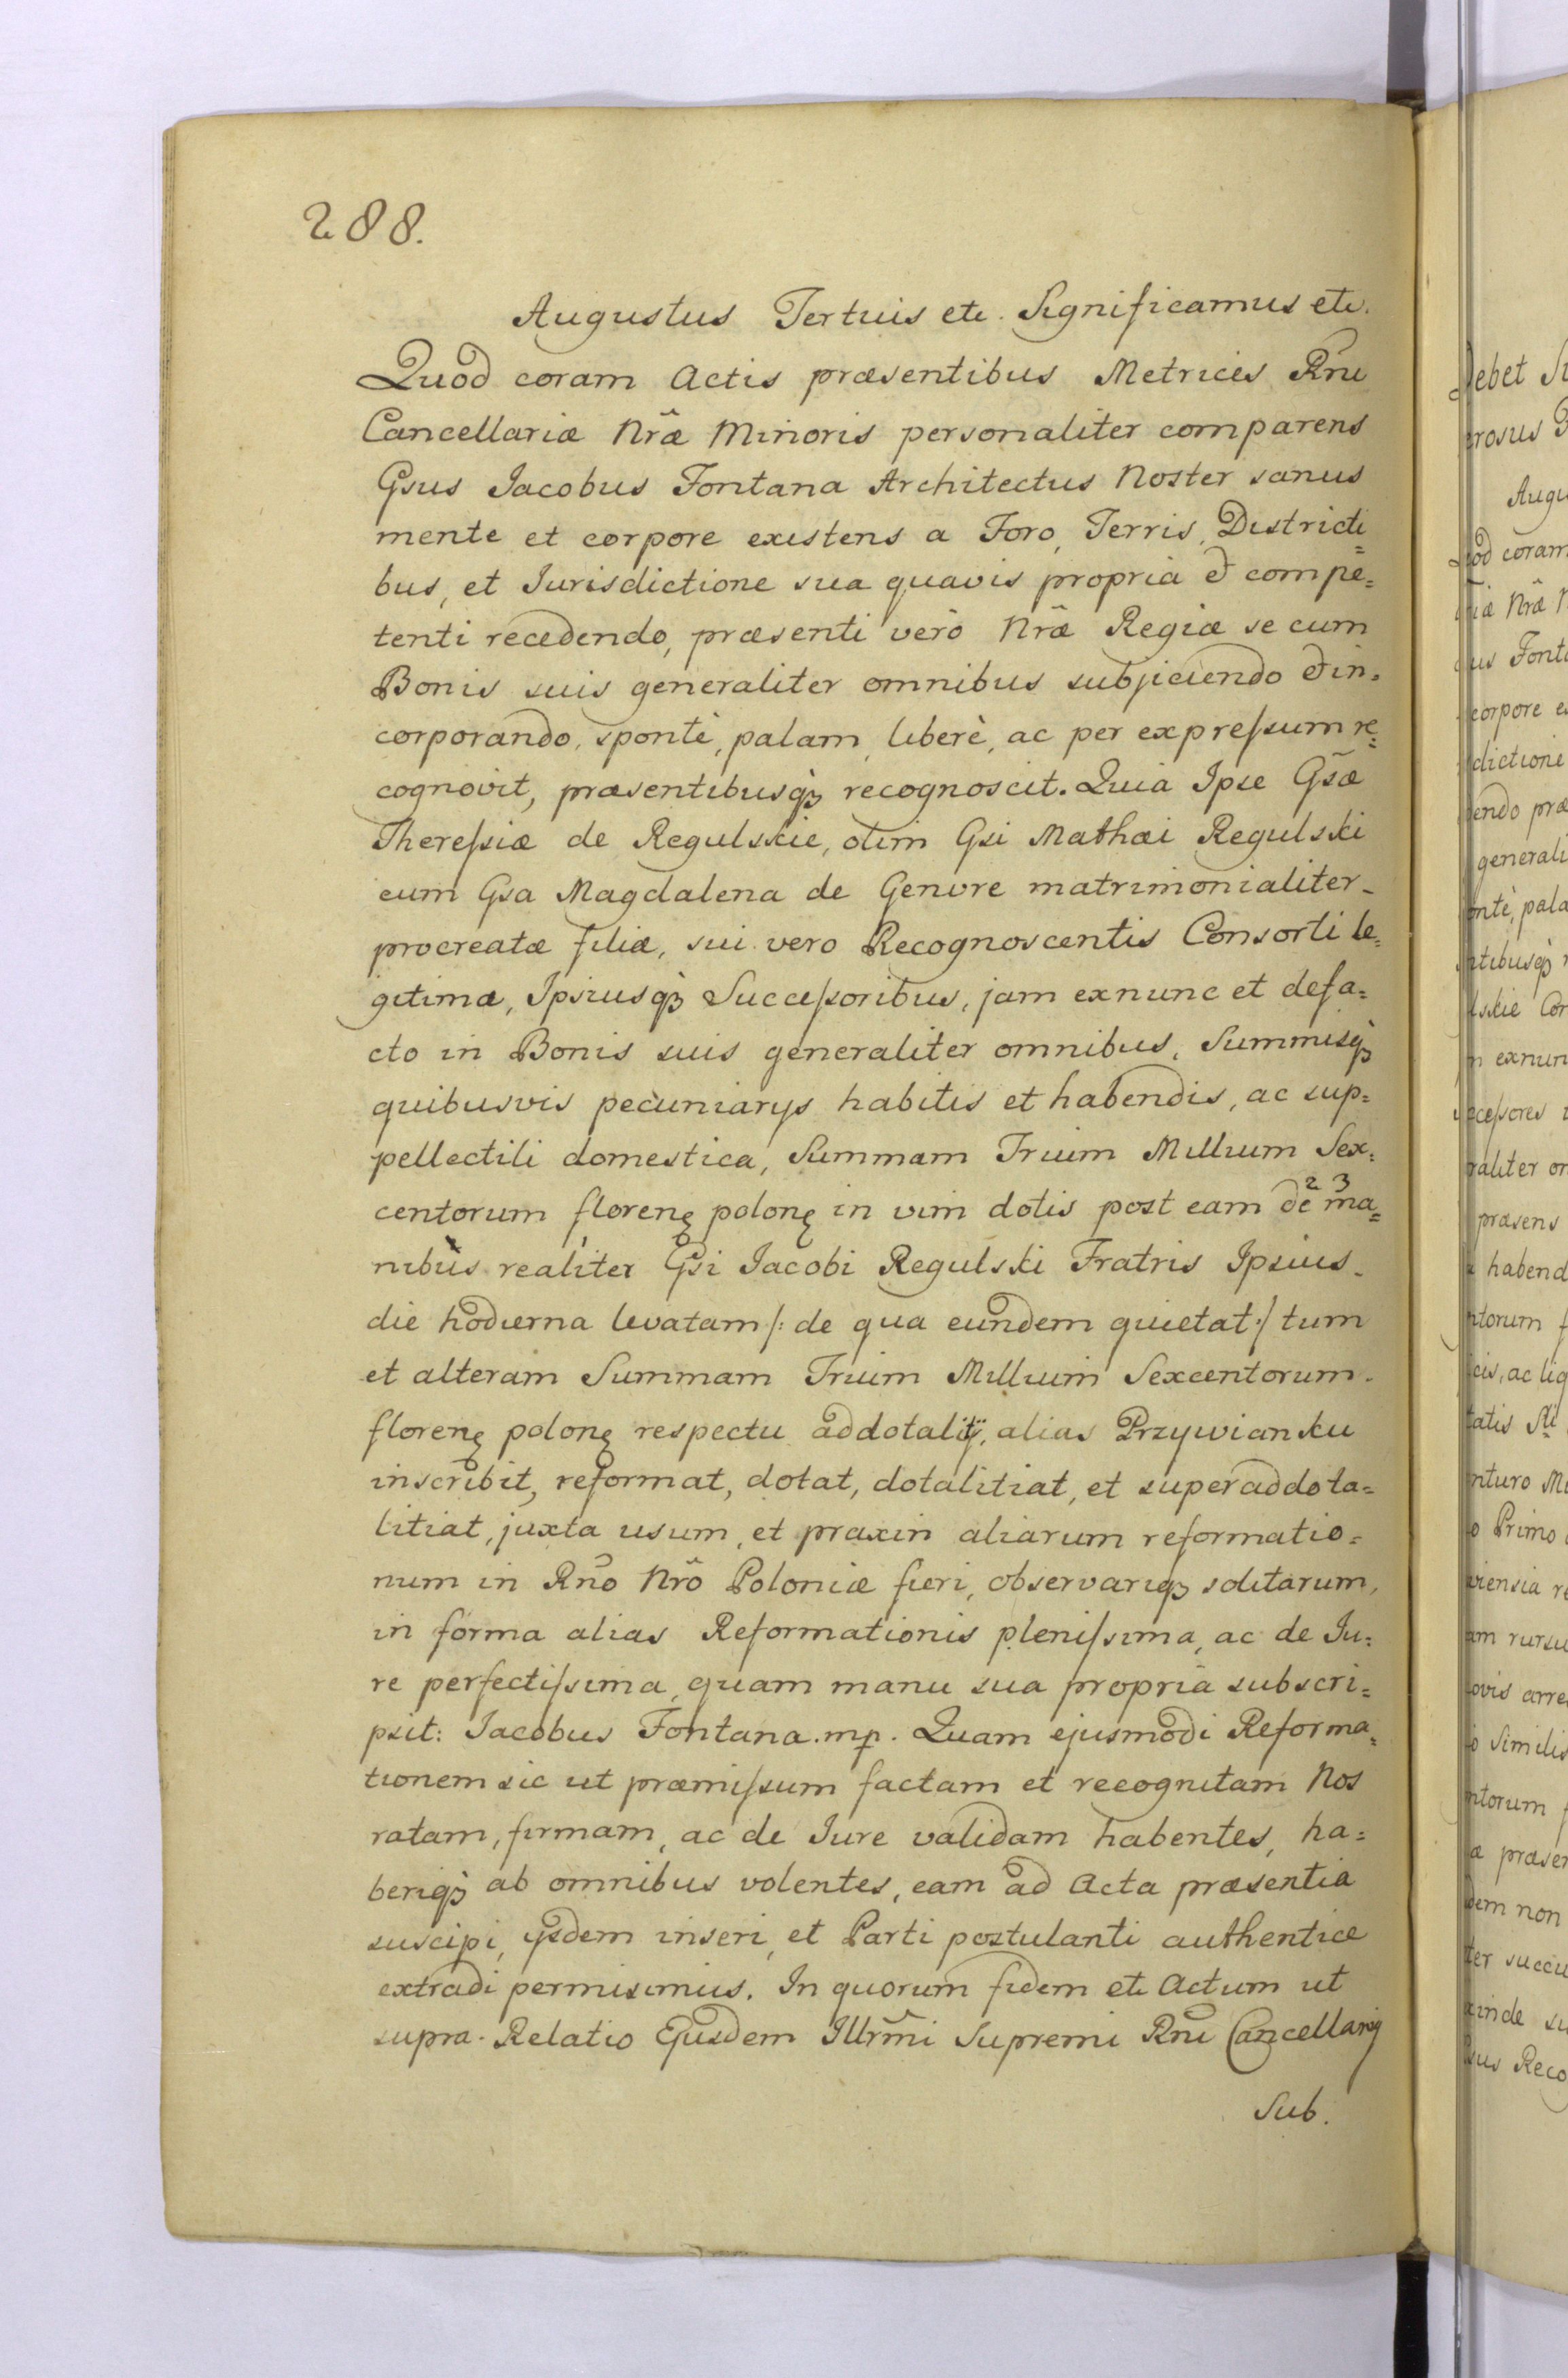 288.
Augustus Tertius etc. Significamus etc.
Quod coram Actis præsentibus Metrices Rñi
Cancellariæ Nrã̃e Minoris personaliter comparens
Gsus Jacobus Fontana Architectus Noster sanus
mente et corpore existens a Foro, Terris, Districti=
bus, et Jurisdictione sua quavis propria et compe=
tenti recedendo, præsenti verò Nrãe Regiæ se cum
Bonis suis generaliter omnibus subjiciendo et in=
corporando, spontè, palam, liberè, ac per expressum re=
cognovit, præsentibusq3 recognoscit. Quia Ipse Gsãe
Theressiæ de Regulskie, olim Gsi Mathæi Regulski
cum Gsa Magdalena de Genvre matrimonialiter-
procreatæ filiæ, sui vero Recognoscentis Consorti le=
gitimæ, Ipsiusq3 Successoribus, jam exnunc et defa=
cto in Bonis suis generaliter omnibus, Summisq3
quibusvis pecuniarys habitis et habendis, ac sup=
pellectili domestica, Summam Trium Millium Sex=
centorum florenę polonę in vim dotis post eam de 2 ma= 3
nibus realiter Gsi Jacobi Regulski Fratris Ipsius-
die hodierna levatam /: de qua eundem quietat :/ tum
et alteram Summam Trium Millium Sexcentorum-
florenę polonę respectu addotalitÿ, alias Przywianku
inscribit, reformat, dotat, dotalitiat, et superaddota=
litiat, juxta usum, et praxin aliarum reformatio=
num in Rño Nrõ Poloniæ fieri, observariq3 solitarum,
in forma alias Reformationis plenissima, ac de Ju=
re perfectissima, quam manu sua propria subscri=
psit: Jacobus Fontana.mp. Quam ejusmodi Reforma=
tionem sic ut præmissum factam et recognitam Nos
ratam, firmam, ac de Jure validam habentes, ha=
beriq3 ab omnibus volentes, eam ad Acta præsentia
suscipi, ysdem inseri, et Parti postulanti authentice
extradi permisimus. In quorum fidem etc Actum ut
supra. Relatio Ejusdem Illrm̃i Supremi Rñi Cancellarij
Sub.